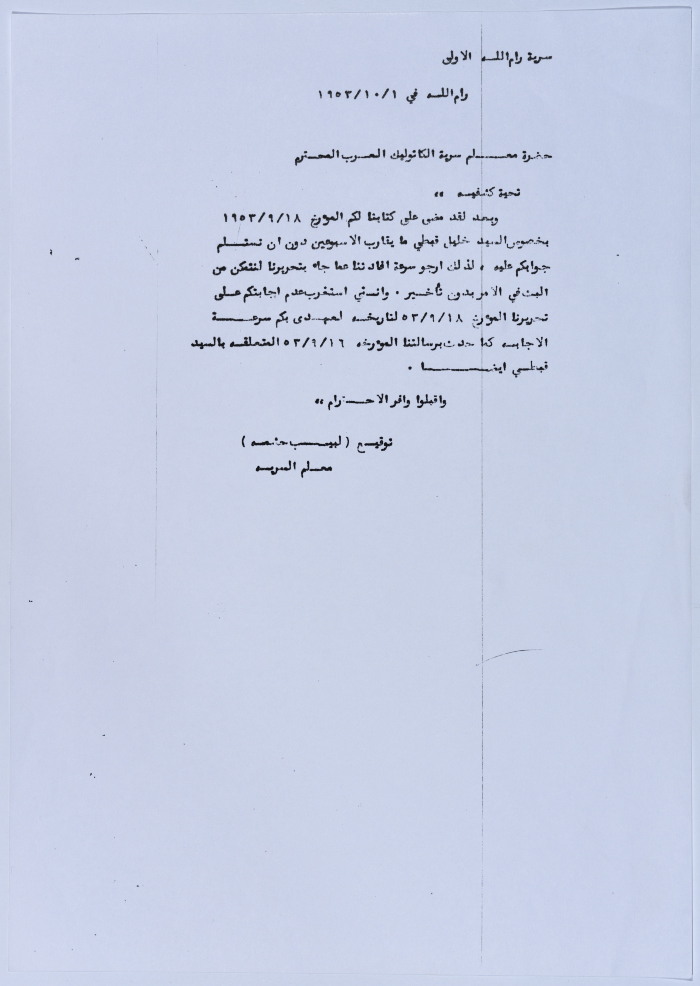 سرية رام الله الاولى
رام الله في ١٩٥٣/١٠/١
حضرة معلم سرية الكاثوليك العرب المحترم
تحية كشفيه ،،
وبعد لقد مضى على كتابنا لكم المؤرخ ١٩٥٣/٩/١٨
بخصوص السيد خليل قبطي ما يقارب الاسبوعين دون ان نستلم
جوابكم عليه ، لذلك ارجو سرعة افادتنا عما جاء بتحريرنا لنتمكن من
البت في الامر بدون تأخير . وانني استغرب عدم اجابتكم على
تحريرنا المؤرخ ٥٣/٩/١٨ لتاريخه لعهدى بكم سرعة
الاجابه كما حدث برسالتنا المؤرخه ٥٣/٩/١٦ المتعلقه بالسيد
قبطي ايضا .
واقبلوا وافر الاحترام ،،
توقيع ( لبيب )
معلم السريه